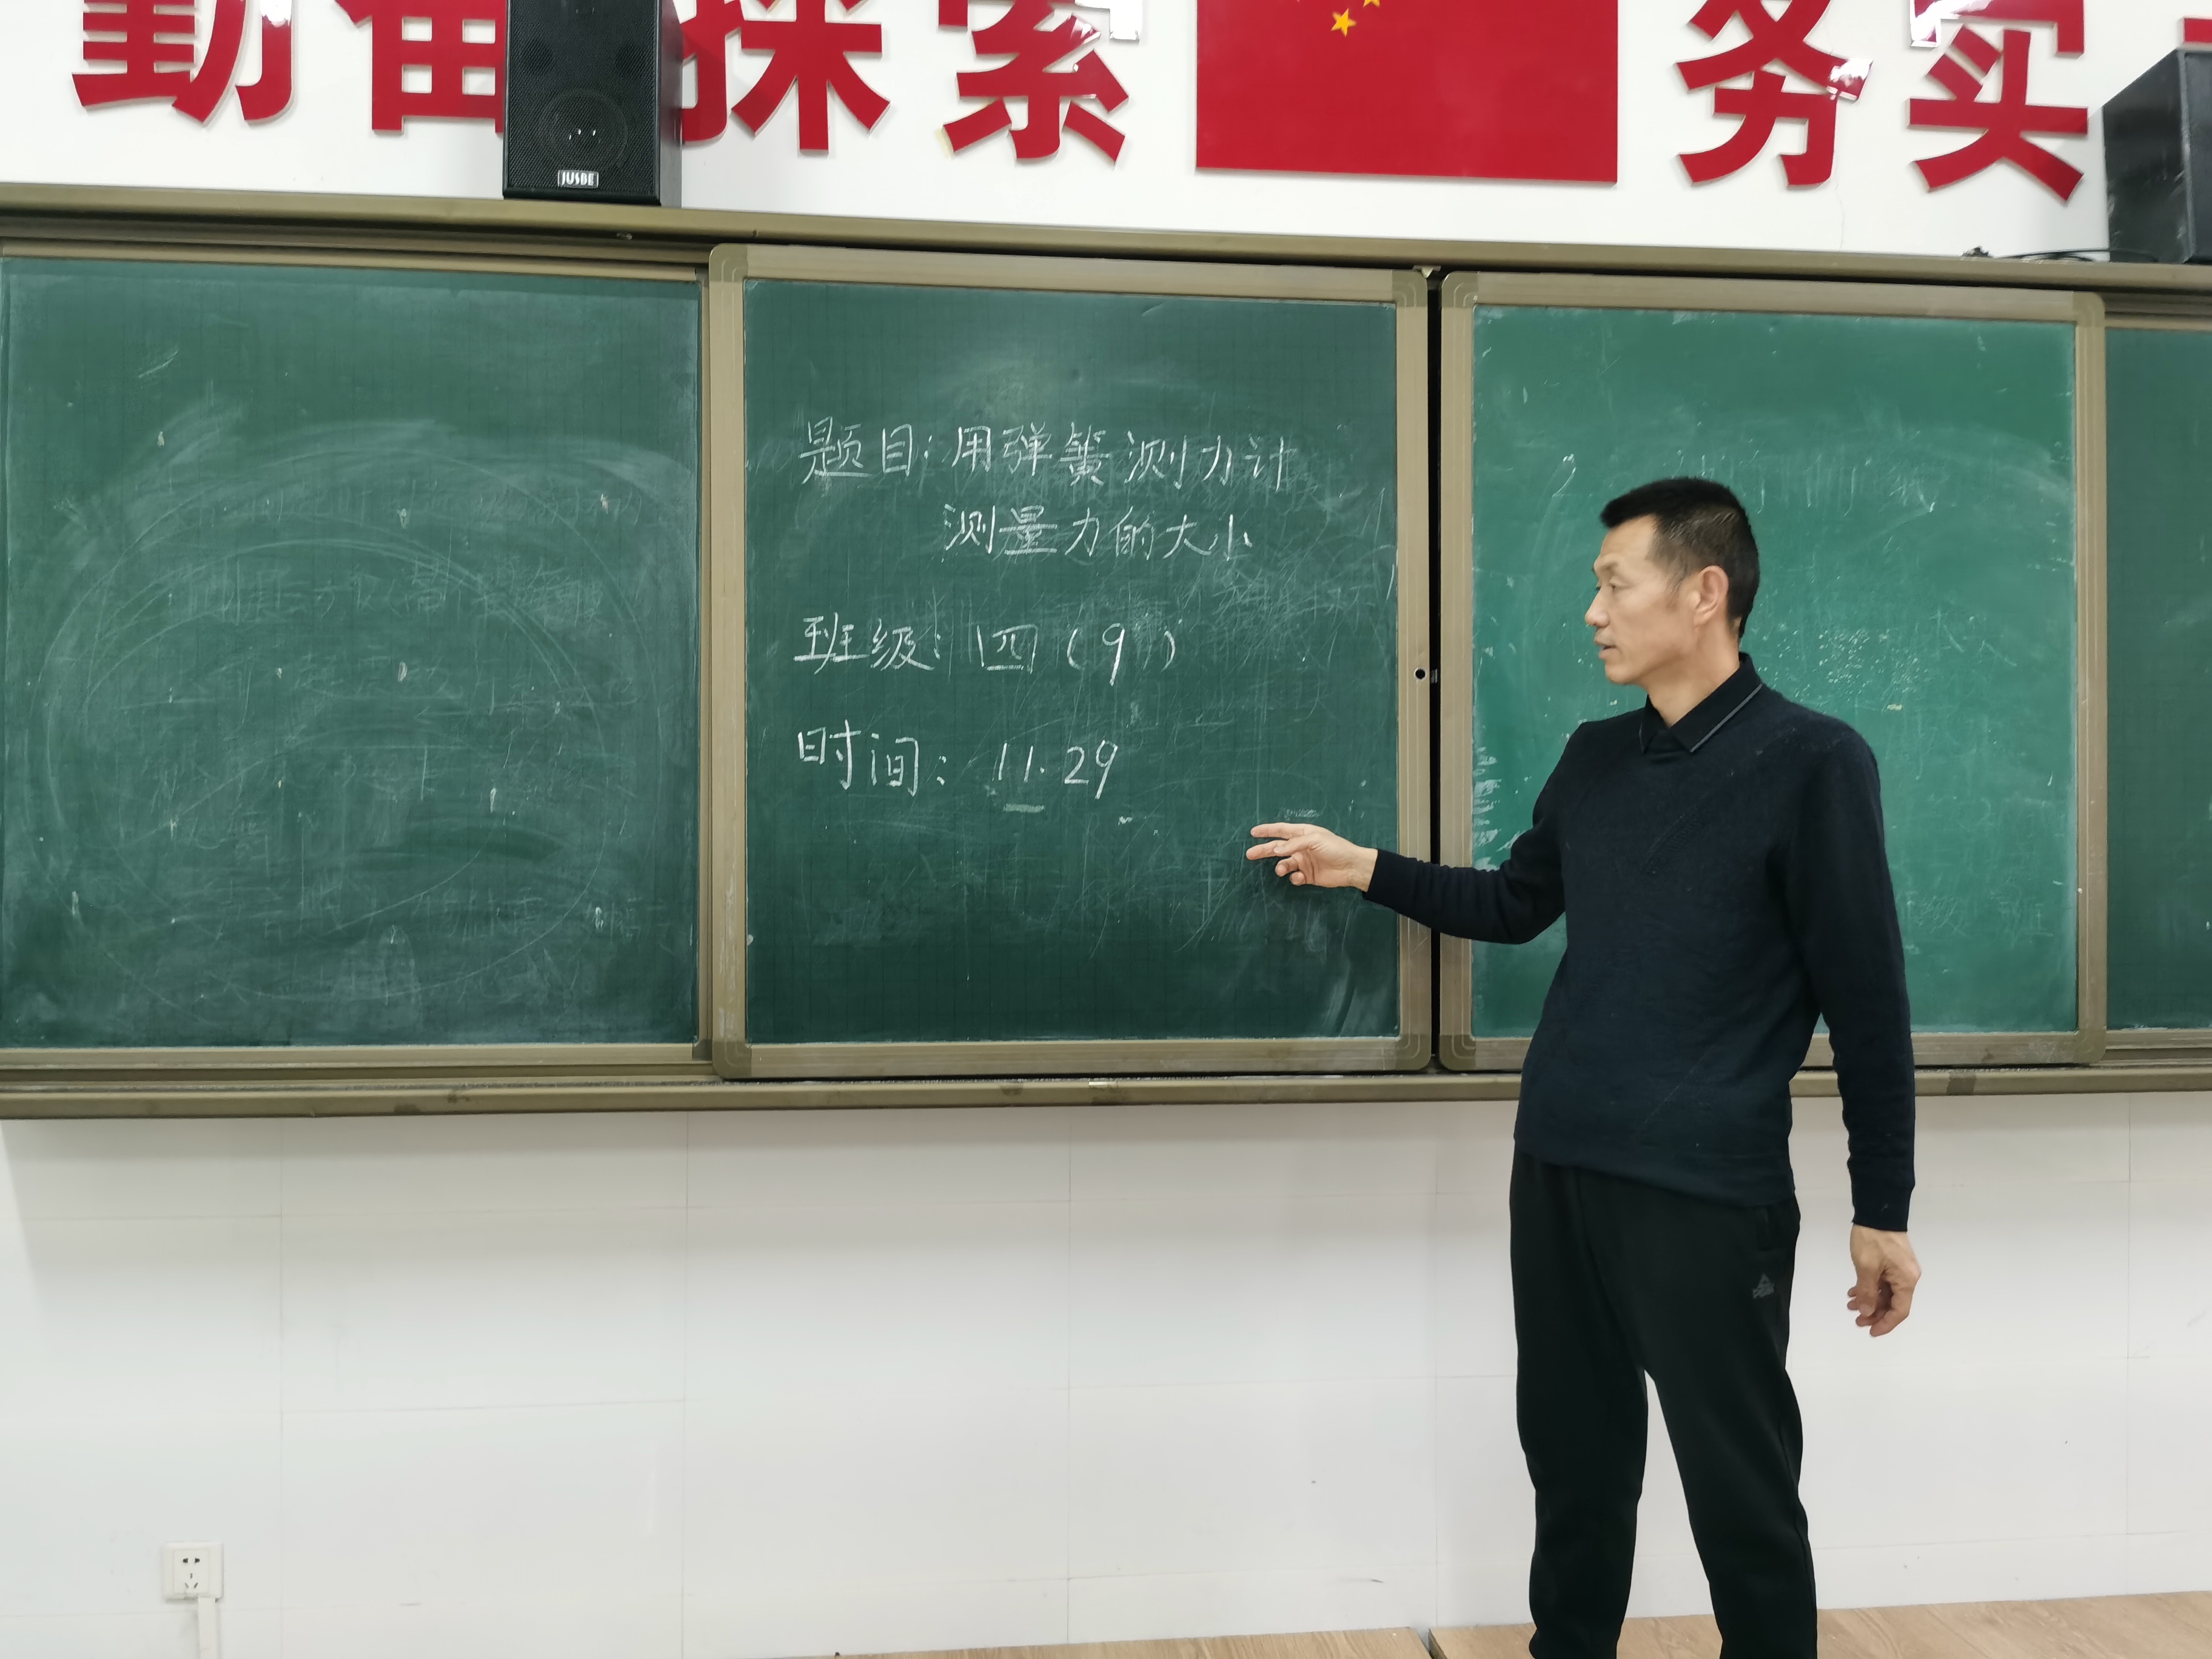 勤奋 探索 务实
JUSBE
题目:用弹簧测力计
测量力的大小
班级:四(9)
时间:11.29